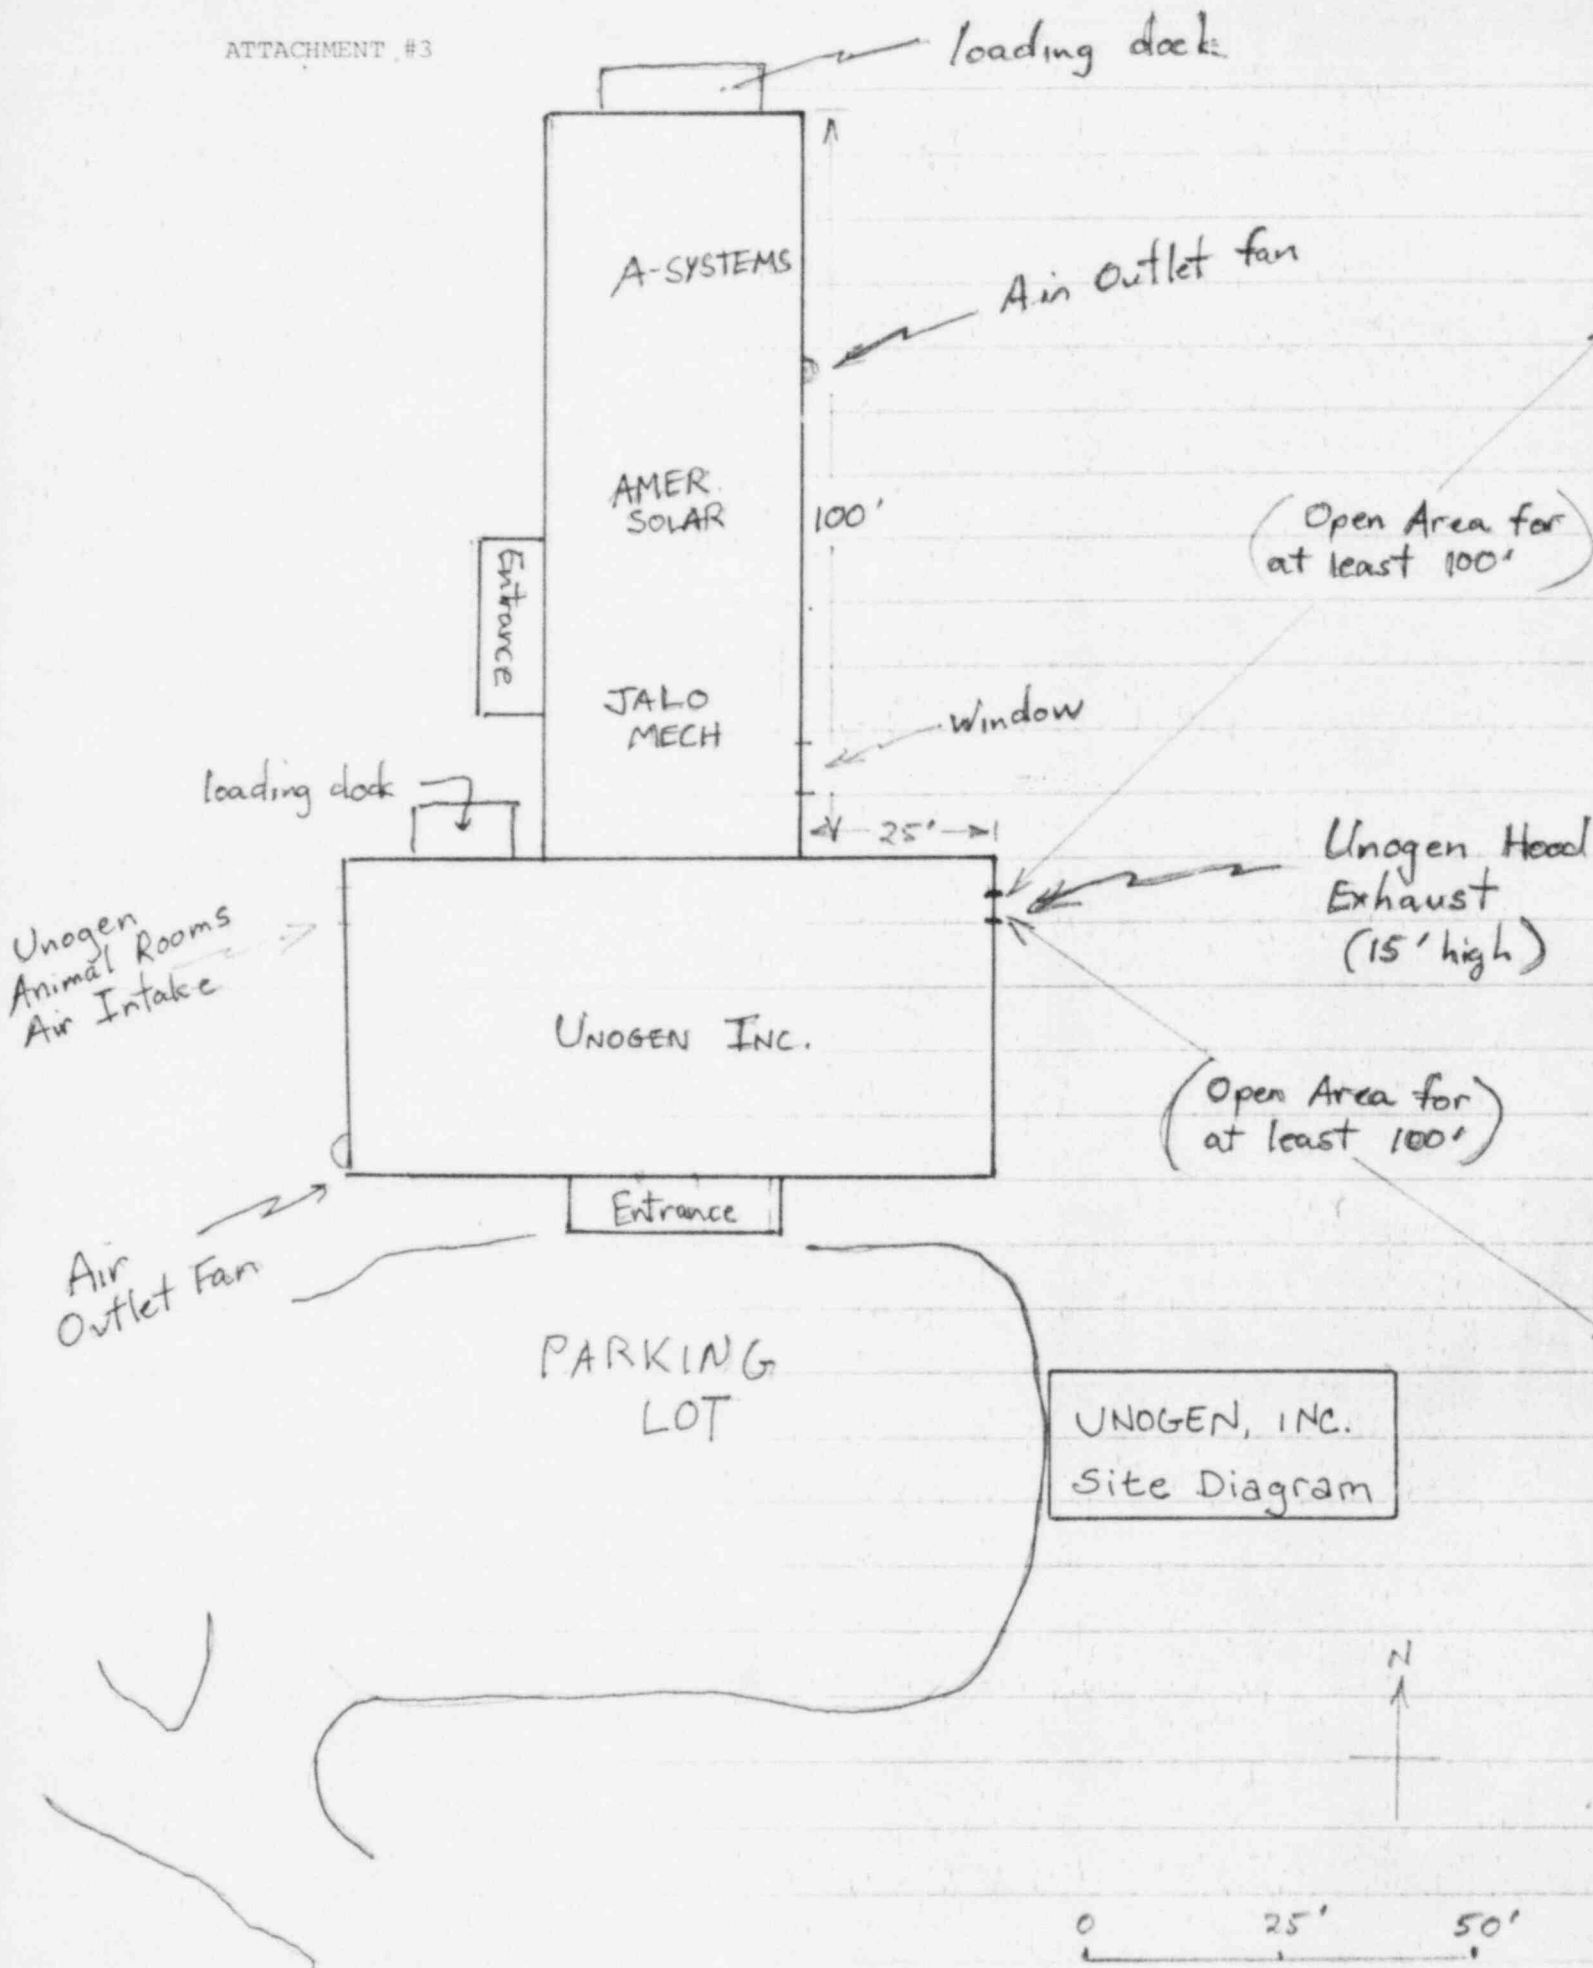 ATTACHMENT #3
loading dock
A-SYSTEMS
Air Outlet fan
AMER.
SOLAR
100'
(Open Area for
at least 100')
Entrance
JALO
MECH
window
loading dock
25'
Unogen Hood
Exhaust
(15' high)
Unogen
Animal Rooms
Air Intake
UNOGEN INC.
(Open Area for
at least 100')
Entrance
Air
Outlet Fan
PARKING
LOT
UNOGEN, INC.
Site Diagram
N
0 25' 50'